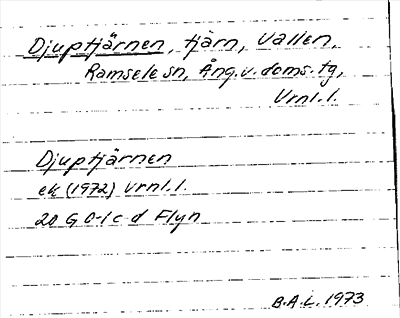 Djuptjärnen, tjärn, Vallen,
Ramsele sn, Ång. v. doms. tg,
Vrnl. l.
Djuptjärnen
ek (1972) Vrnl. l.
20 G 0-1 c d Flyn
B.A.L. 1973